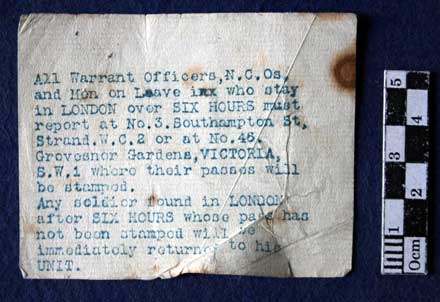 All Warrant Officers,N.C.Os,
and Men on Leave inx who stay
in LONDON over SIX HOURS must
report at No.3.Southampton St,
Strand.W.C.2 or at No.46.
Grovesnor Gardens,VICTORIA,
S.W.1 where their passes will
be stamped.
Any soldier found in LONDON
after SIX HOURS whose pass has
not been stamped will be
immediately returned to his
UNIT.
5
4
3
2
1
0cm